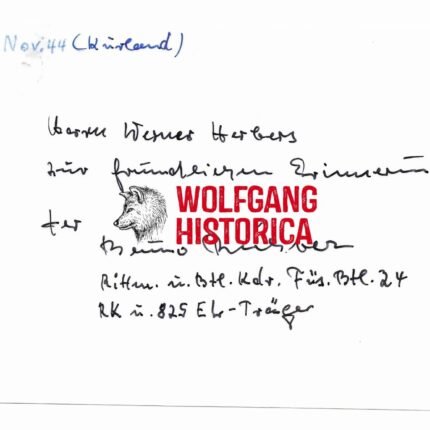 Nov. 44 (Kurland)
Herrn Werner Herbers
zur freundlichen Erinnerung
WOLFGANG
HISTORICA
der
Bruno
Rittm. u. Btl. Kdr. Füs. Btl. 24
RK u. 825 El-Träger